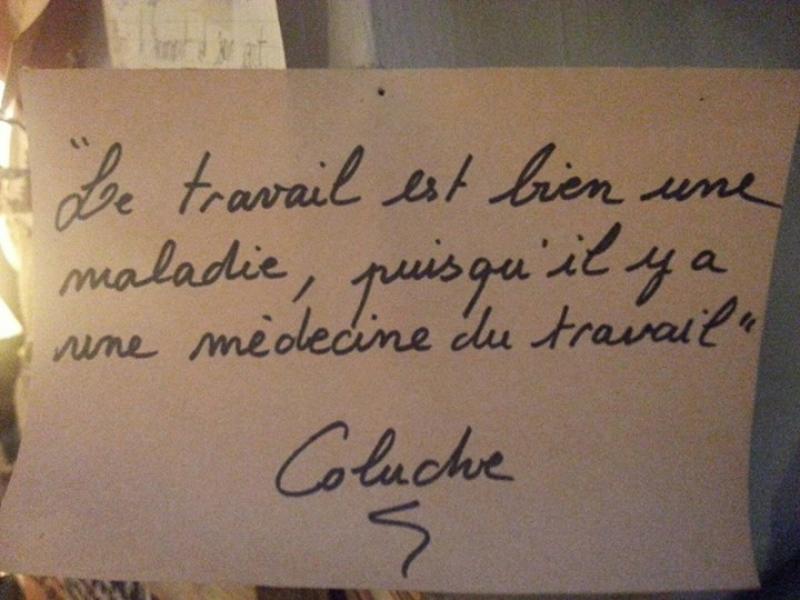 "Le travail est bien une
maladie, puisqu'il y a
une médecine du travail"
Coluche